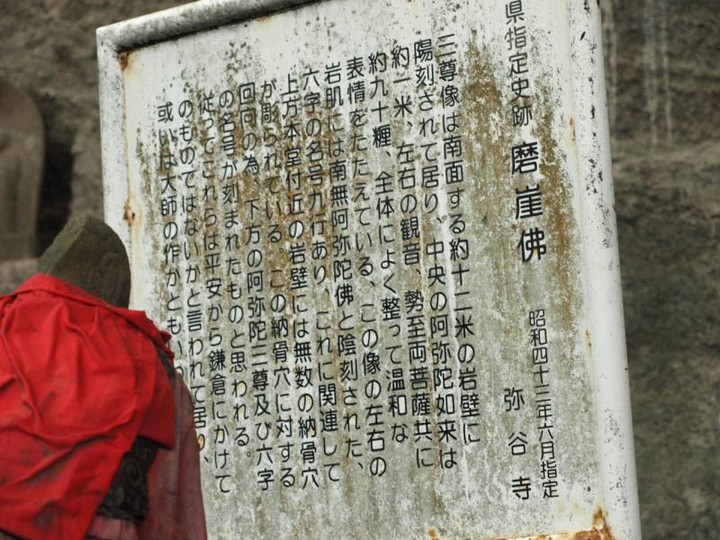 県指定史跡 磨崖佛 昭和四十三年六月指定
弥谷寺
三尊像は南面する約十二米の岩壁に
陽刻されて居り、中央の阿弥陀如来は
約一米、左右の観音、勢至両菩薩共に
約九十糎、全体によく整って温和な
表情をたたえている、この像の左右の
岩肌には南無阿弥陀佛と陰刻された、
六字の名号九行あり、これに関連して
上方本堂付近の岩壁には無数の納骨穴
が彫られている、この納骨穴に対する
回向の為、下方の阿弥陀三尊及び六字
の名号が刻まれたものと思われる。
従ってこれらは平安から鎌倉にかけて
のものではないかと言われて居り、
或いは大師の作かとも